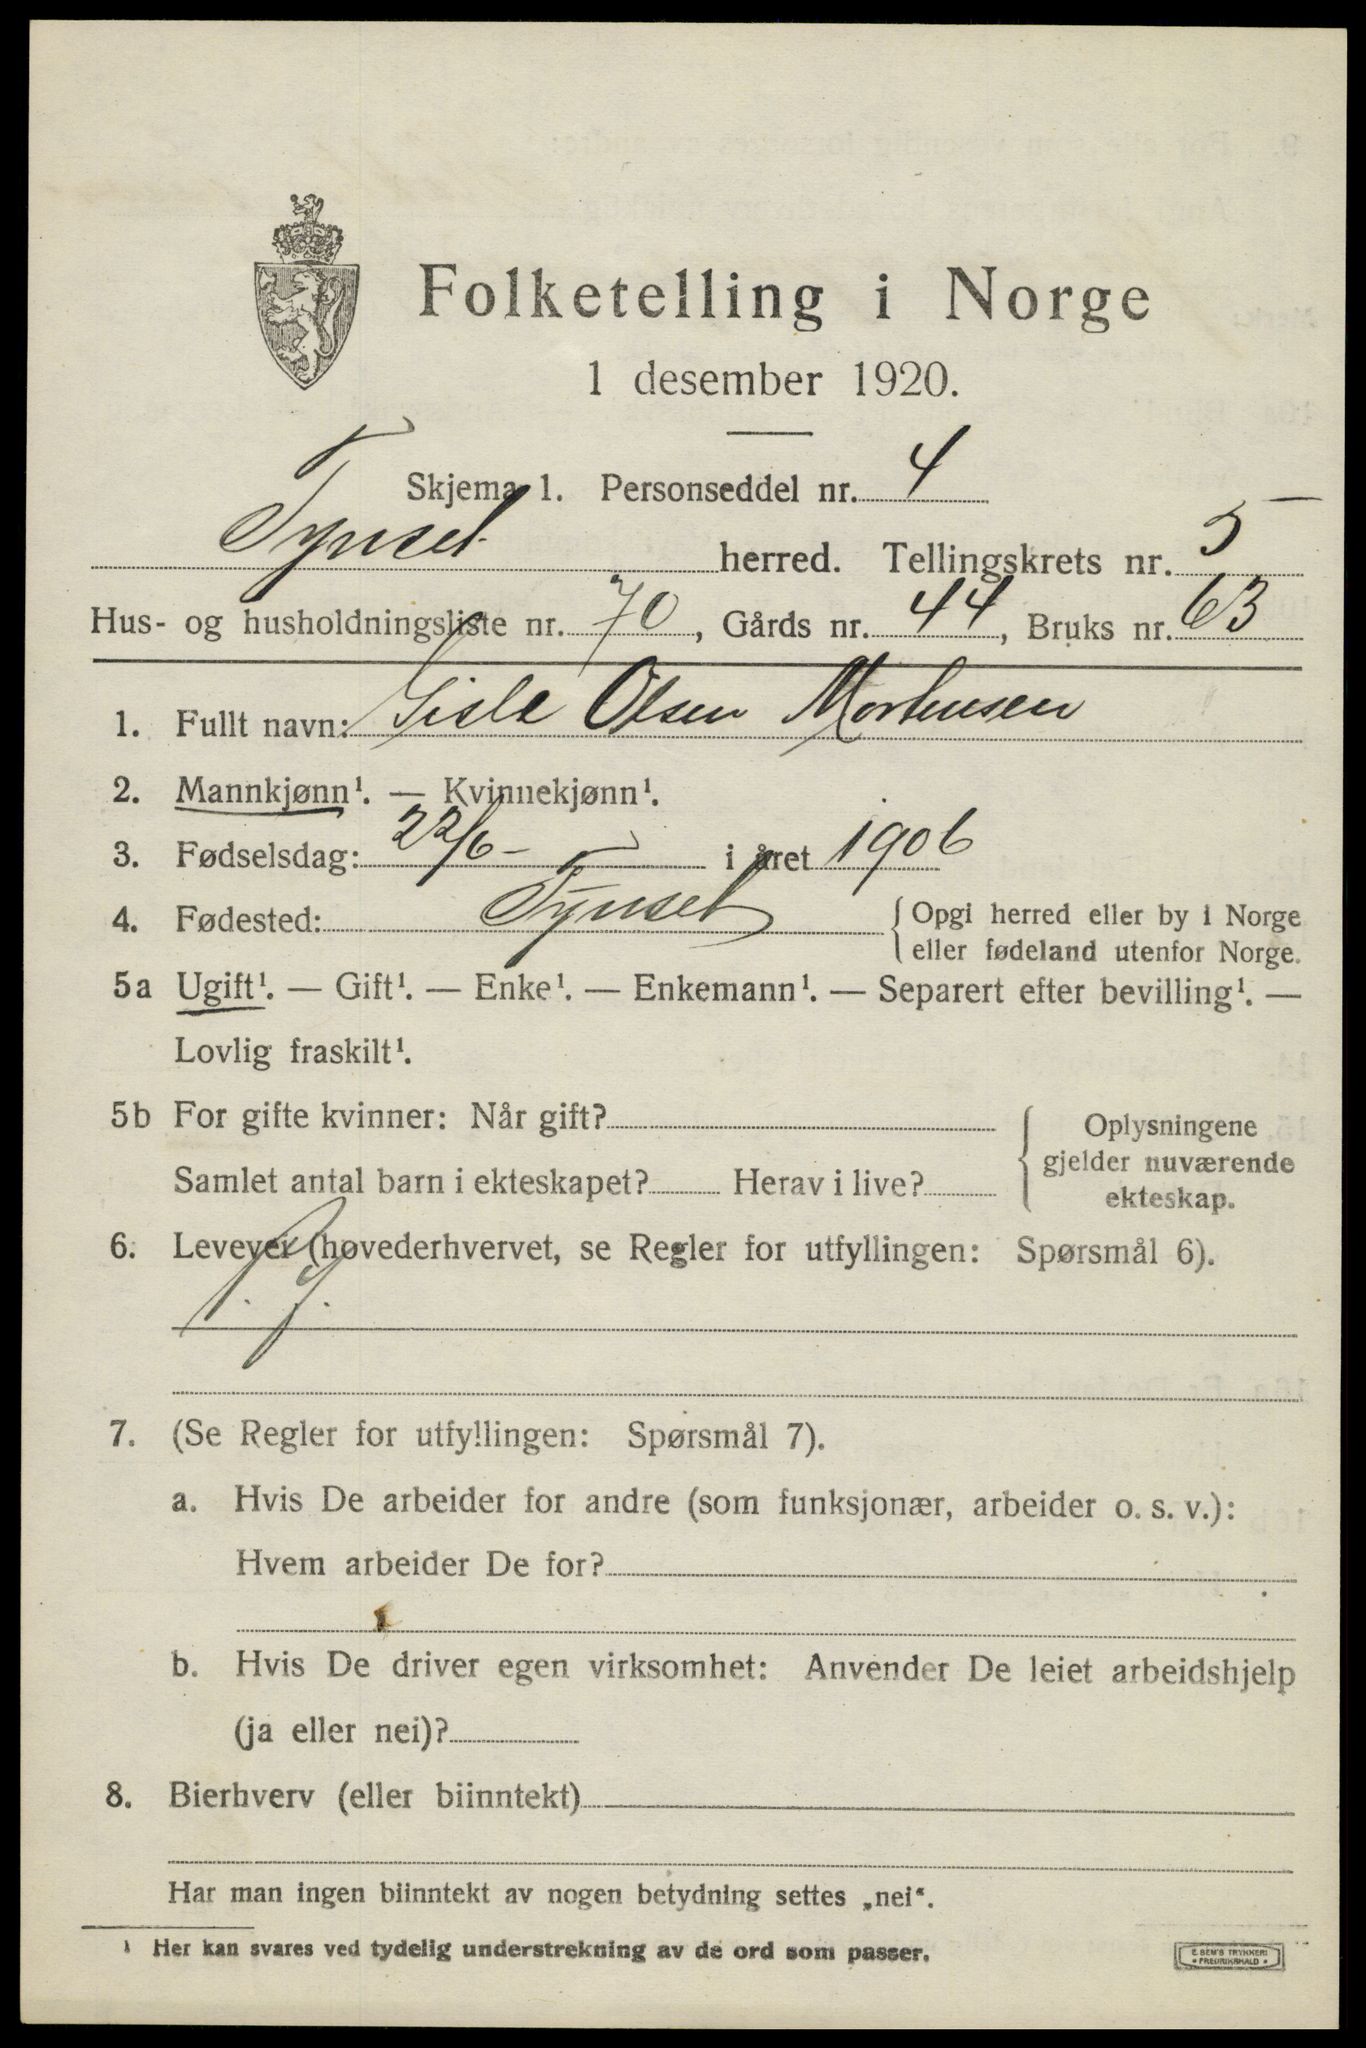 Folketelling i Norge
1 desember 1920.
Skjema 1. Personseddel nr. 4
Tynset herred. Tellingskrets nr. 5
Hus- og husholdningsliste nr. 70, Gårds nr. 44, Bruks nr. 63
1. Fullt navn: Gisle Olsen Mortensen
2. Mannkjønn¹. — Kvinnekjønn¹.
3. Fødselsdag: 22/6 - i året 1906
4. Fødested: Tynset { Opgi herred eller by i Norge
eller fødeland utenfor Norge.
5a Ugift¹. — Gift¹. — Enke¹. — Enkemann¹. — Separert efter bevilling¹. —
Lovlig fraskilt¹.
5b For gifte kvinner: Når gift? { Oplysningene
gjelder nuværende
Samlet antal barn i ekteskapet? Herav i live?
ekteskap.
6. Levevei (hovederhvervet, se Regler for utfyllingen: Spørsmål 6).
7. (Se Regler for utfyllingen: Spørsmål 7).
a. Hvis De arbeider for andre (som funksjonær, arbeider o. s. v.):
Hvem arbeider De for?
b. Hvis De driver egen virksomhet: Anvender De leiet arbeidshjelp
(ja eller nei)?
8. Bierhverv (eller biinntekt)
Har man ingen biinntekt av nogen betydning settes „nei“.
¹ Her kan svares ved tydelig understrekning av de ord som passer.
E. SEM'S TRYKKERI
* FREDRIKSHALD *